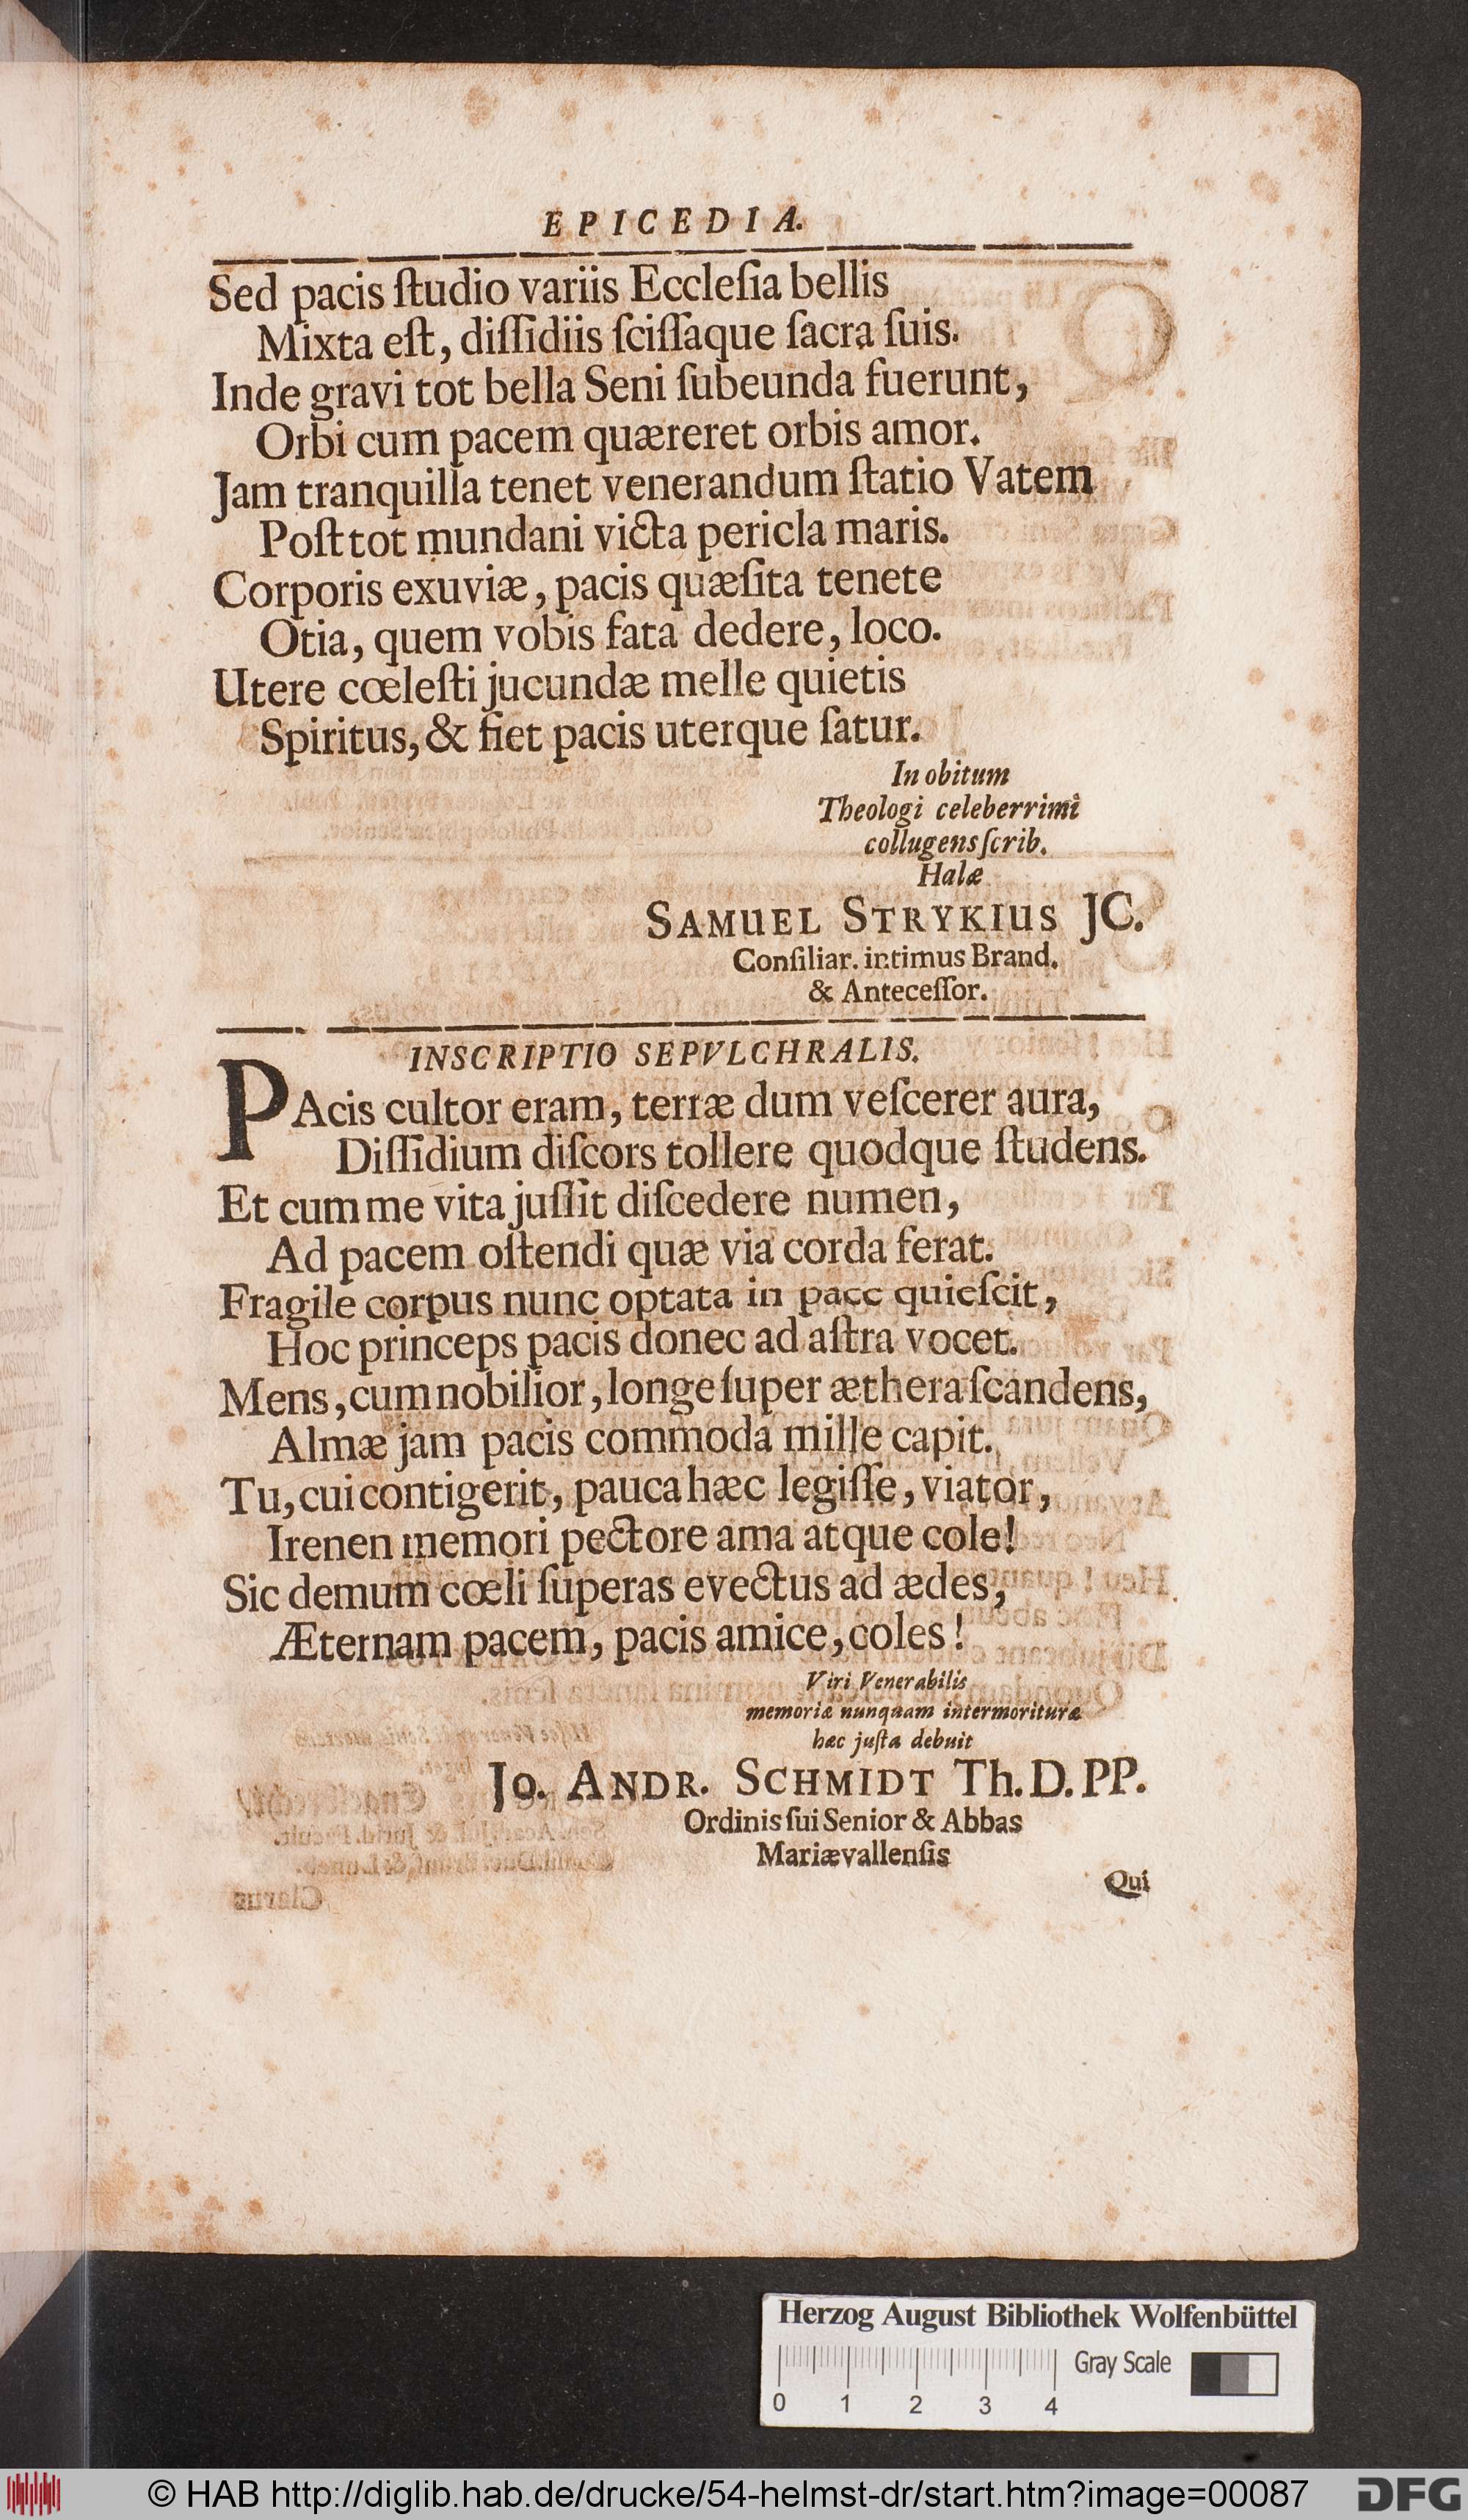 EPICEDIA.
Sed pacis ſtudio variis Eccleſia bellis
Mixta eſt, diſſidiis ſciſſaque ſacra ſuis.
Inde gravi tot bella Seni ſubeunda fuerunt,
Orbi cum pacem quæreret orbis amor.
Jam tranquilla tenet venerandum ſtatio Vatem
Poſt tot mundani victa pericla maris.
Corporis exuviæ, pacis quæſita tenete
Otia, quem vobis fata dedere, loco.
Utere cœleſti jucundæ melle quietis
Spiritus, & fiet pacis uterque ſatur.
In obitum
Theologi celeberrimi
collugens ſcrib.
Halæ
SAMUEL STRYKIUS JC.
Conſiliar. intimus Brand.
& Anteceſſor.
INSCRIPTIO SEPVLCHRALIS.
PAcis cultor eram, terræ dum veſcerer aura,
Diſſidium diſcors tollere quodque ſtudens.
Et cum me vita juſſit diſcedere numen,
Ad pacem oſtendi quæ via corda ferat.
Fragile corpus nunc optata in pace quieſcit,
Hoc princeps pacis donec ad aſtra vocet.
Mens, cum nobilior, longe ſuper æthera ſcandens,
Almæ jam pacis commoda mille capit.
Tu, cui contigerit, pauca hæc legiſſe, viator,
Irenen memori pectore ama atque cole!
Sic demum cœli ſuperas evectus ad ædes,
Æternam pacem, pacis amice, coles!
Viri Venerabilis
memoriæ nunquam intermorituræ
hæc juſta debuit
JO. ANDR. SCHMIDT Th. D. PP.
Ordinis ſui Senior & Abbas
Mariævallenſis
Qui
Herzog August Bibliothek Wolfenbüttel
Gray Scale
0 1 2 3 4
© HAB http://diglib.hab.de/drucke/54-helmst-dr/start.htm?image=00087
DFG